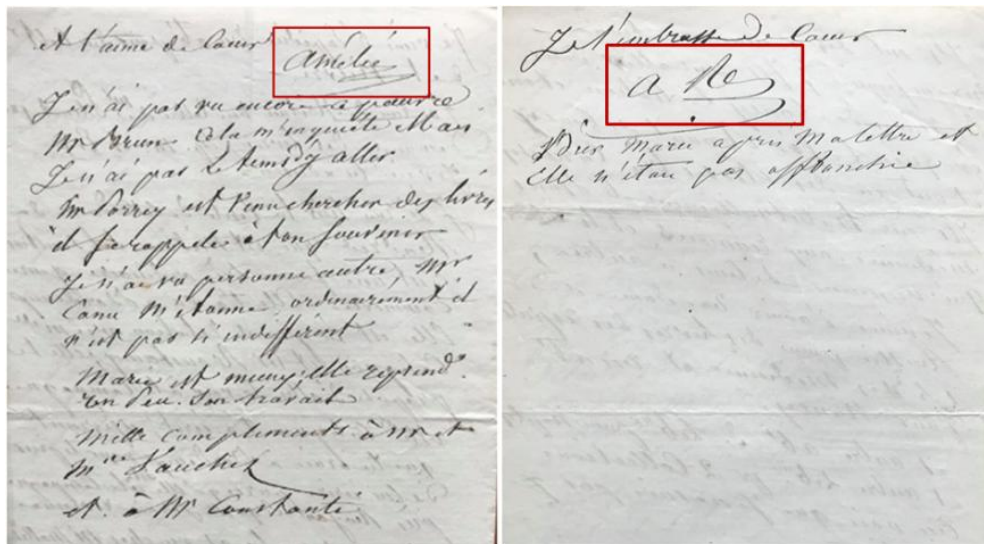 et t'aime de Coeur
Amélie
Je n'ai pas vu encore à pauvre
Mr Brun Cela m'inquiète Mais
Je n'ai pas le tems d'y aller
Mr Porrey est Venu chercher des livres
il se rappele à ton Souvenir
Je n'ai vu personne autre Mr
Canu M'étonne ordinairement il
n'est pas si indifférent
Marie est mieux, elle reprend
un Peu Son travail
Mille compliments à Mr et
Mme Vauchez
et à Mr Constanti
Je t'embrasse de Coeur
A Re
Marie a pris Ma lettre et
elle n'était pas affranchie